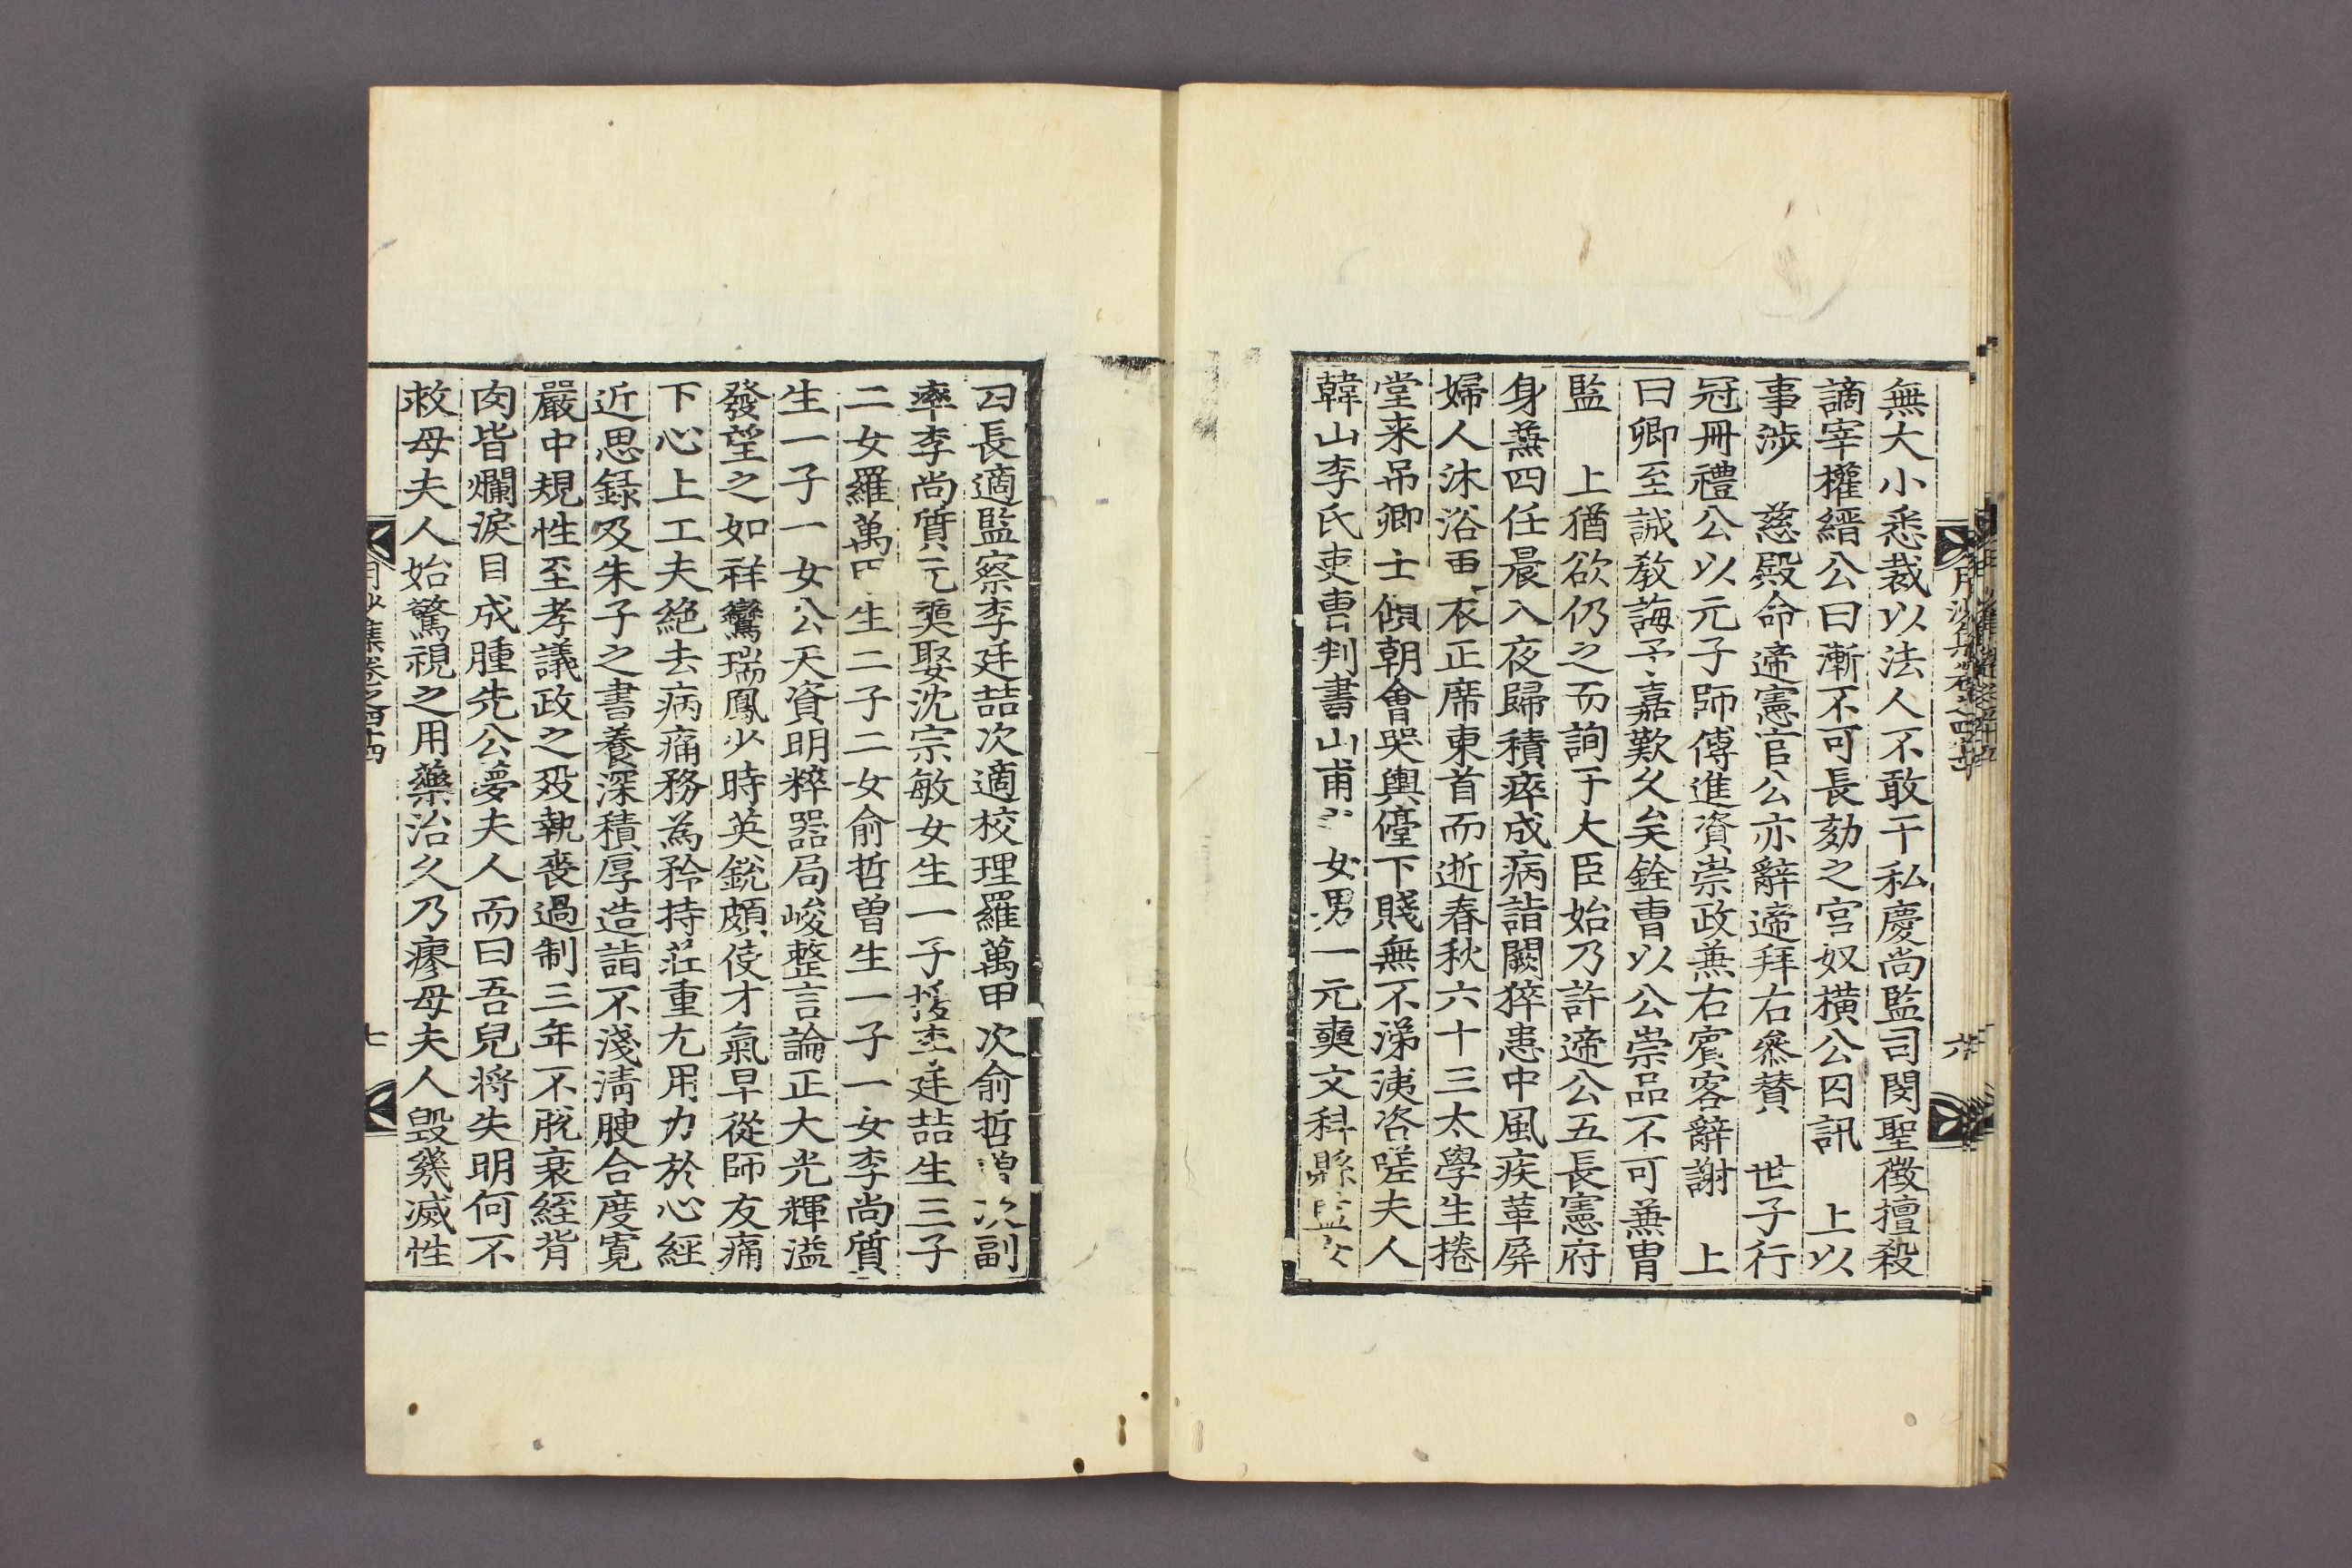 無大小悉裁以法人不敢干私慶尚監司閔聖徵擅殺
謫宰權縉公曰漸不可長劾之宮奴橫公囚訊 上以
事涉 慈殿命遞憲官公亦辭遞拜右叅賛 世子行
冠冊禮公以元子師傅進資崇政兼右賓客辭謝 上
曰卿至誠敎誨予嘉歎久矣銓曹以公崇品不可兼冑
監 上猶欲仍之而詢于大臣始乃許遞公五長憲府
身兼四任晨入夜歸積瘁成病詣闕猝患中風疾革屛
婦人沐浴更衣正席東首而逝春秋六十三太學生捲
堂来吊卿士傾朝會哭輿儓下賤無不涕洟咨嗟夫人
韓山李氏吏曹判書山甫女男一元奭文科縣監女
月沙集卷之四十四
六
曰長適監察李廷喆次適校理羅萬甲次俞哲曾次副
率李尚質元奭娶沈宗敏女生一子後李廷喆生三子
二女羅萬甲生二子二女俞哲曾生一子一女李尚質
生一子一女公天資明粹器局峻整言論正大光輝溢
發望之如祥鸞瑞鳳少時英銳頗使才氣早從師友痛
下心上工夫絶去病痛務為矜持莊重尤用力於心經
近思錄及朱子之書養深積厚造詣不淺淸腴合度寬
嚴中規性至孝議政之殁執喪過制三年不脫衰絰背
肉皆爛淚目成腫先公夢夫人而曰吾兒將失明何不
救母夫人始驚視之用藥治久乃瘳母夫人毁幾滅性
月沙集卷之四十四
七